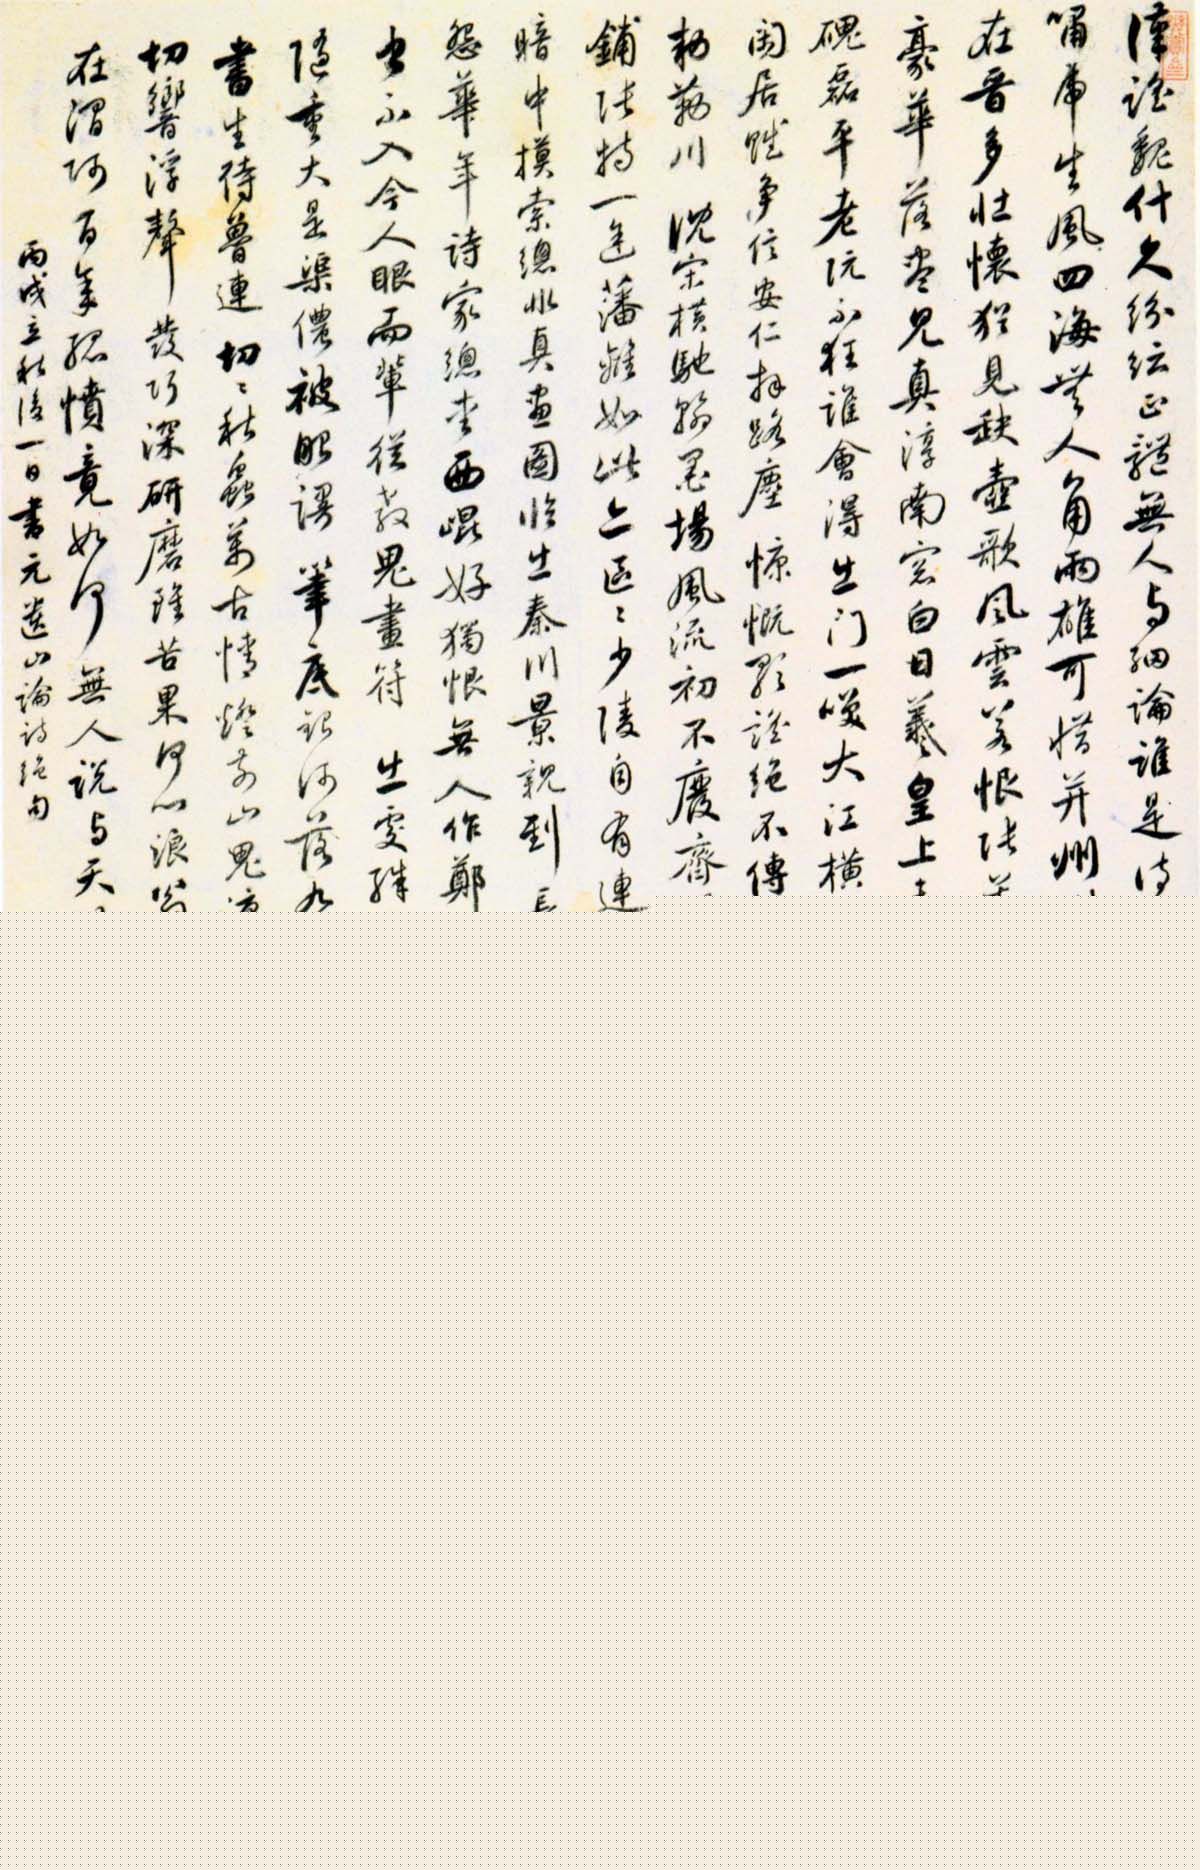 漢謠魏什久紛紜正體無人與細論誰是詩
嘯虎生風四海無人角兩雄可惜并州
在晉多壯懷猶見缺壺歌風雲若恨張華
豪華落盡見真淳南窗白日羲皇上
磈磊平老阮不狂誰會得出門一笑大江橫
閑居賦爭信安仁拜路塵 慷慨歌謠絕不傳
敕勒川 沈宋橫馳翰墨場風流初不廢齊
鋪張特一途藩籬如此亦區々少陵自有連
暗中摸索總非真畫圖臨出秦川景親到長
怨華年詩家總愛西崑好獨恨無人作鄭
書不入今人眼兒輩從教鬼畫符 出處殊
隨重大是渠儂被眼謾 筆底銀河落九
書生待魯連 切々秋蟲萬古情燈前山鬼淚
切響浮聲發巧深研磨雖苦果何心浪翁
在渭河百年孤憤竟如何 無人說與天
丙戌立秋後一日書元遺山論詩絕句